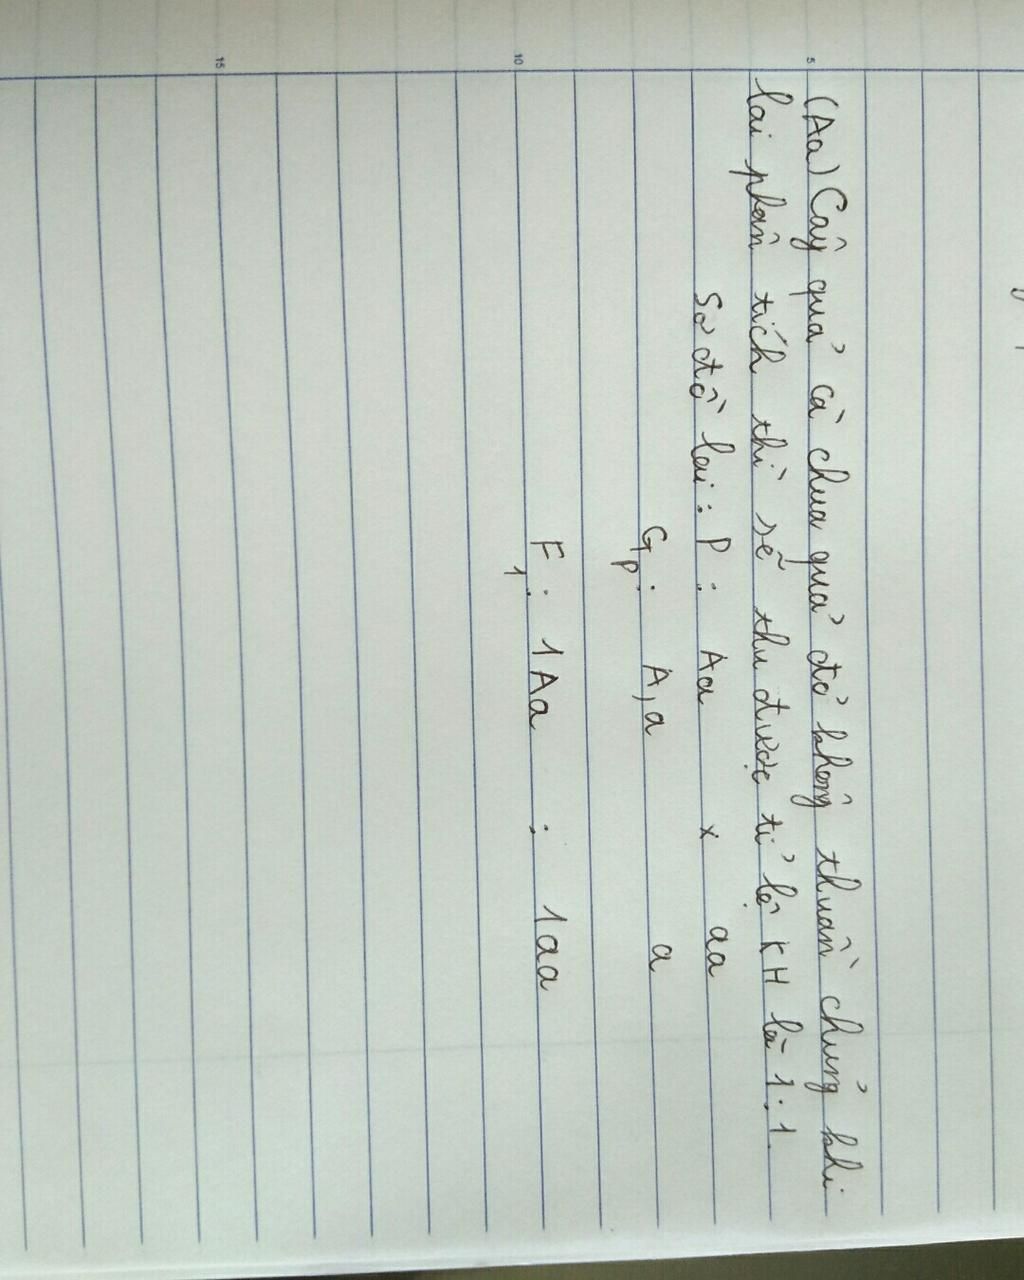 (Aa) Cây quả cà chua quả đỏ không thuần chủng khi
lai phân tích thì sẽ thu được tỉ lệ KH là 1:1.
Sơ đồ lai: P: Aa x aa
Gp: A, a a
F1: 1Aa : 1aa
5
10
15